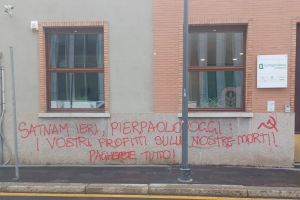 SATNAM IERI, PIERPAOLO OGGI
I VOSTRI PROFITTI SULLE NOSTRE MORTI
PAGHERETE TUTTO!